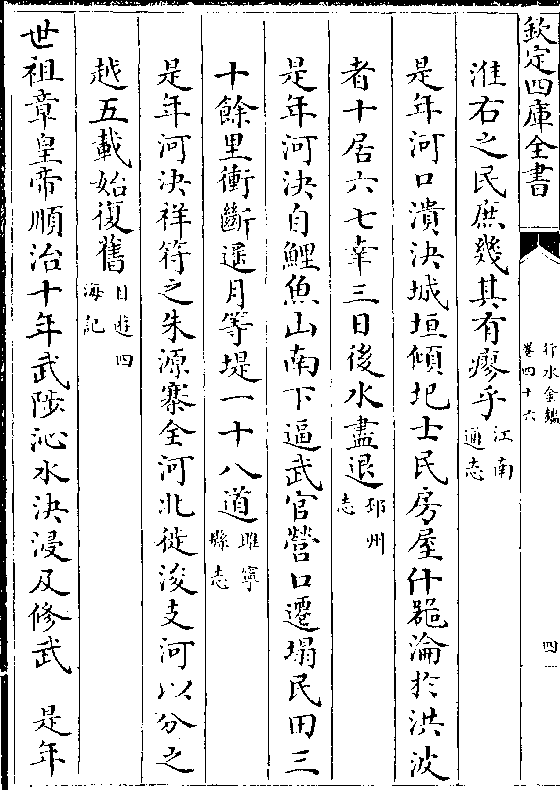 欽定四庫全書
行水金鑑
卷四十六
四
淮右之民庶幾其有瘳乎江南通志
是年河口潰決城垣傾圯士民房屋什器淪於洪波
者十居六七幸三日後水盡退邳州志
是年河決自鯉魚山南下逼武官營口遷塌民田三
十餘里衝斷遥月等堤一十八道睢寧縣志
是年河決祥符之朱源寨全河北徙浚支河以分之
越五載始復舊目遊四海記
世祖章皇帝順治十年武陟沁水決浸及修武　是年